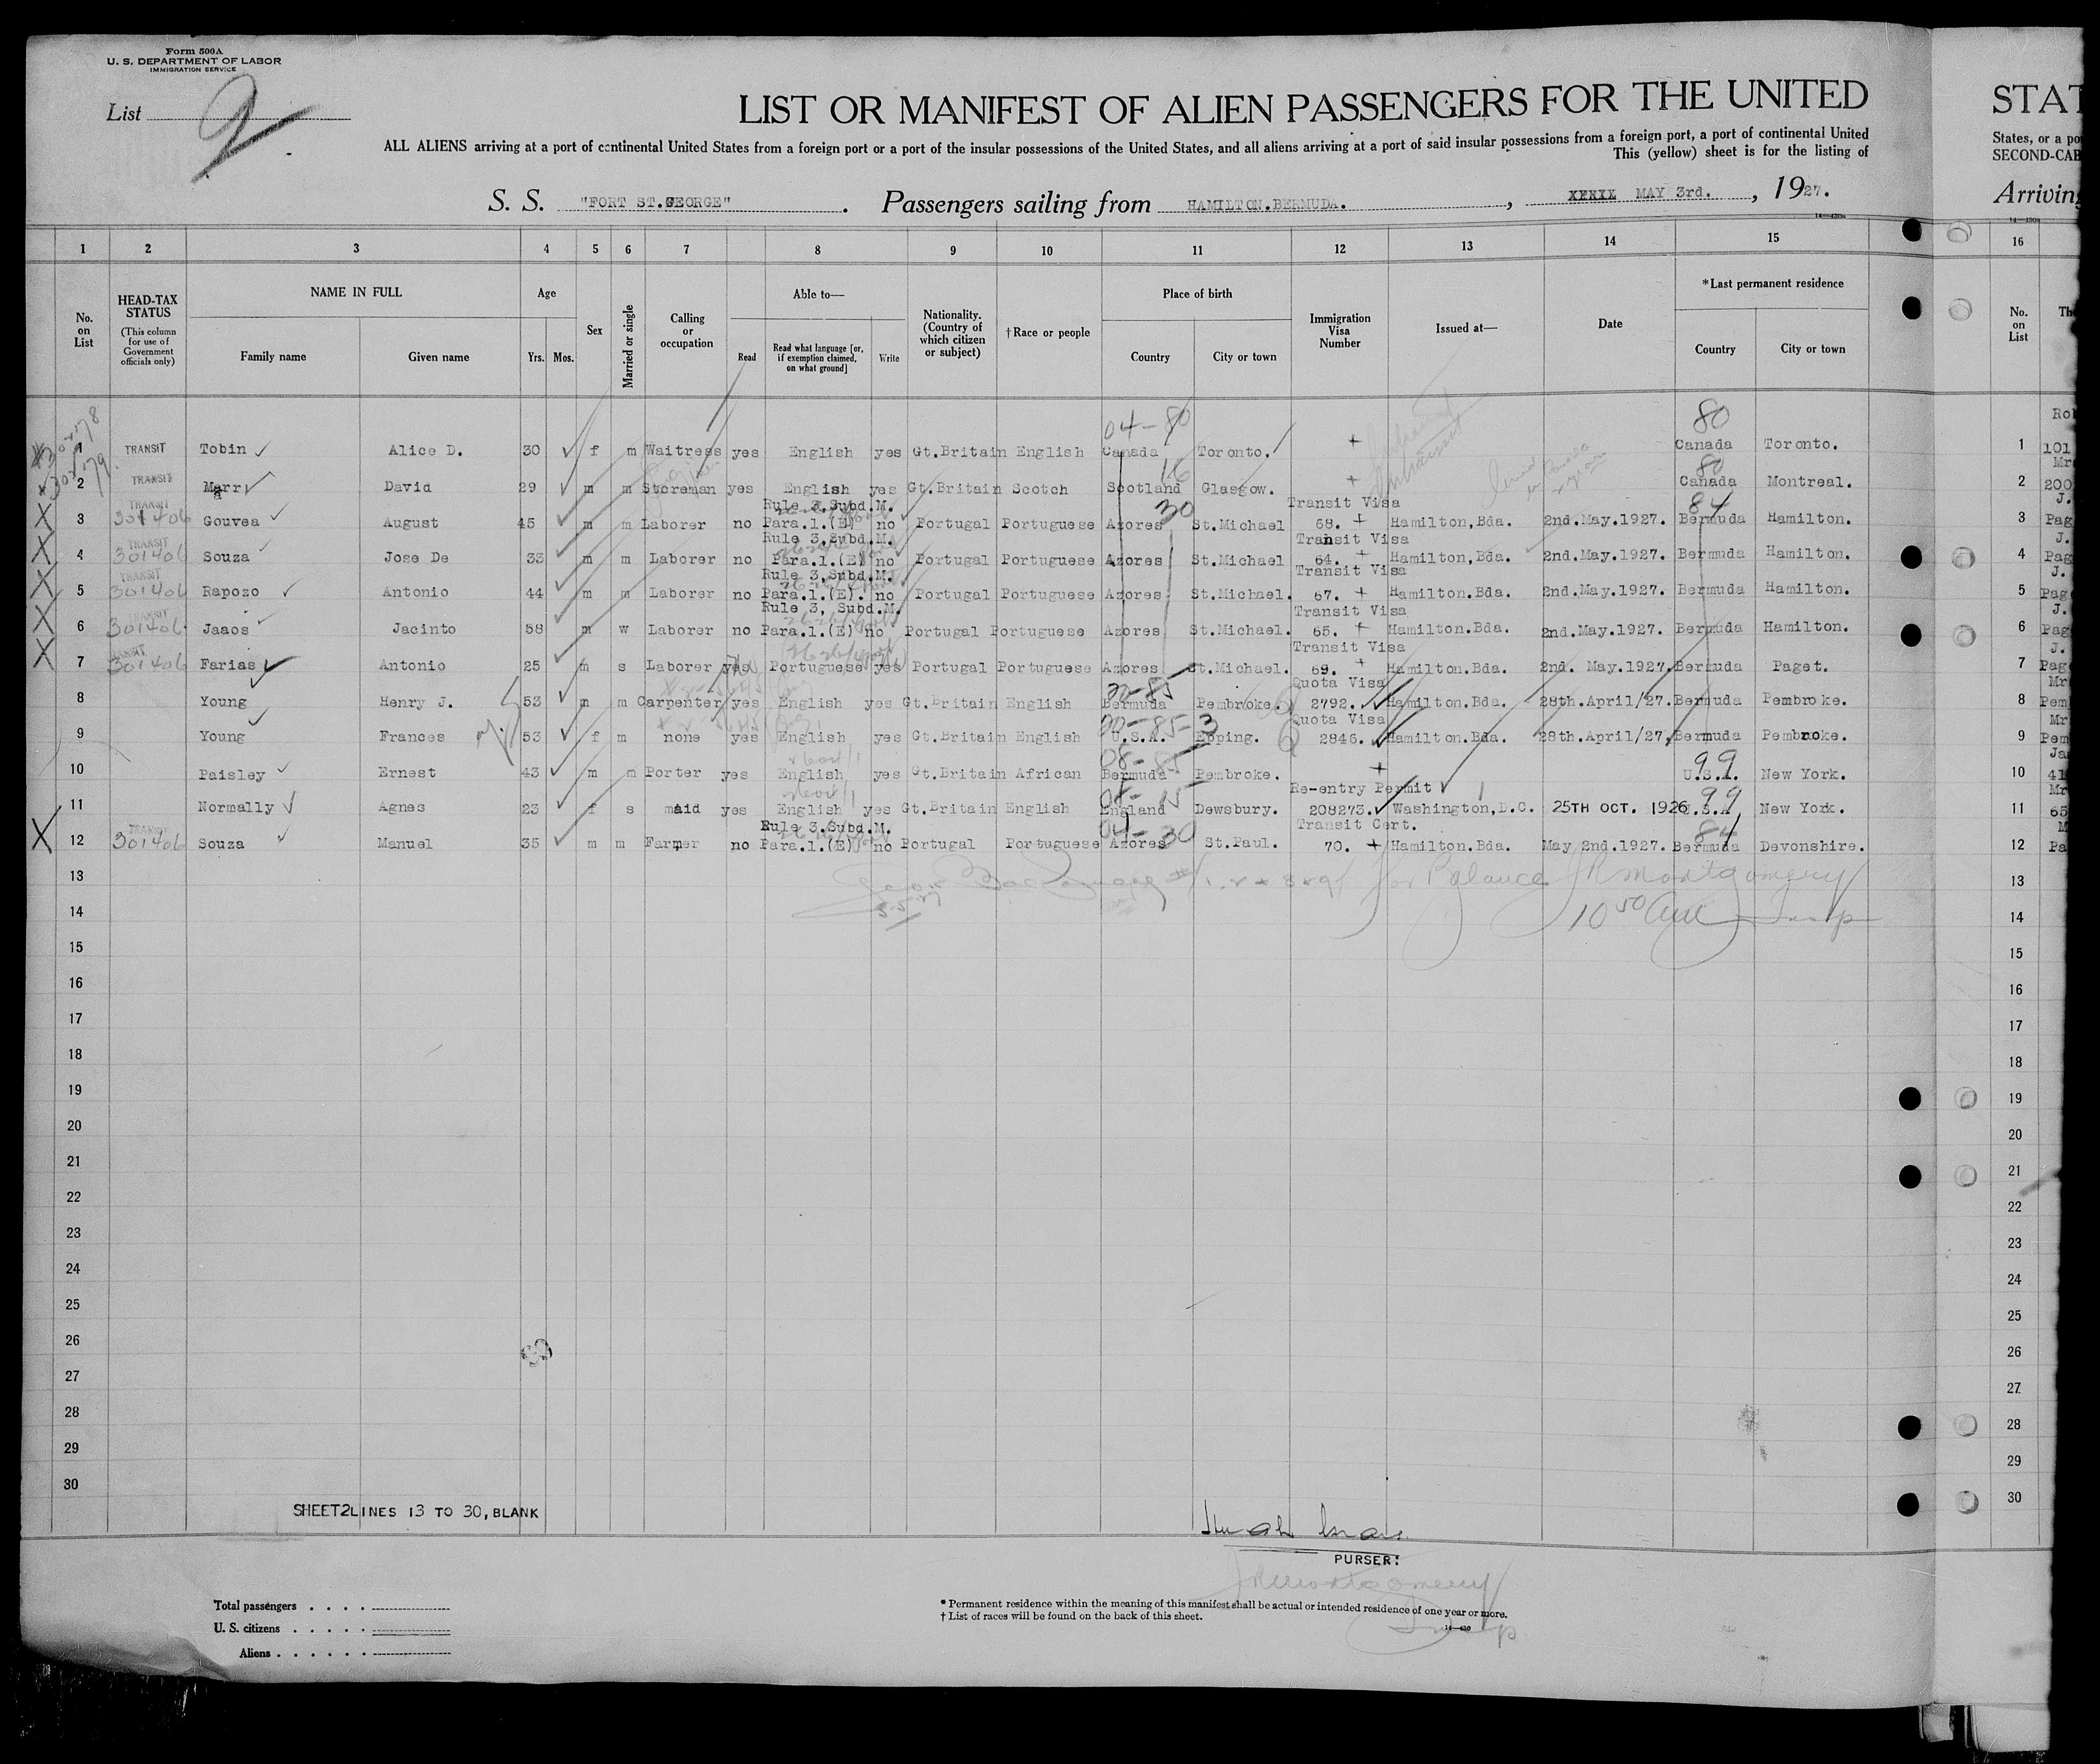 Form 500A
U. S. DEPARTMENT OF LABOR
IMMIGRATION SERVICE
List 2
LIST OR MANIFEST OF ALIEN PASSENGERS FOR THE UNITED
STAT
ALL ALIENS arriving at a port of continental United States from a foreign port or a port of the insular possessions of the United States, and all aliens arriving at a port of said insular possessions from a foreign port, a port of continental United
States, or a po
This (yellow) sheet is for the listing of
SECOND-CAB
S. S. "FORT ST.GEORGE". Passengers sailing from HAMILTON.BERMUDA., MAY 3rd., 1927.
Arriving
1 2 3 4 5 6 7 8 9 10 11 12 13 14 15 16
No. on List
HEAD-TAX STATUS
(This column for use of Government officials only)
NAME IN FULL
Family name Given name
Age
Yrs. Mos.
Sex
Married or single
Calling or occupation
Able to—
Read
Read what language [or, if exemption claimed, on what ground]
Write
Nationality. (Country of which citizen or subject)
†Race or people
Place of birth
Country City or town
Immigration Visa Number
Issued at—
Date
*Last permanent residence
Country City or town
No. on List
Th
04-80 80 Ro
1 TRANSIT Tobin Alice D. 30 f m Waitress yes English yes Gt.Britain English Canada Toronto. Canada Toronto. 1 101
16 80 Mr
2 TRANSIT Marr David 29 m m Storeman yes English yes Gt.Britain Scotch Scotland Glasgow. Canada Montreal. 2 200
TRANSIT Rule 3.Subd.M. 30 Transit Visa 84 J.
3 301406 Gouvea August 45 m m Laborer no Para.1.(E) no Portugal Portuguese Azores St.Michael 68. Hamilton,Bda. 2nd.May.1927. Bermuda Hamilton. 3 Pag
TRANSIT Rule 3,Subd.M. Transit Visa J.
4 301406 Souza Jose De 33 m m Laborer no Para.1.(E) no Portugal Portuguese Azores St.Michael 64. Hamilton,Bda. 2nd.May.1927. Bermuda Hamilton. 4 Pag
TRANSIT Rule 3,Subd.M. Transit Visa J.
5 301406 Rapozo Antonio 44 m m Laborer no Para.1.(E). no Portugal Portuguese Azores St.Michael. 67. Hamilton.Bda. 2nd.May.1927. Bermuda Hamilton. 5 Pag
TRANSIT Rule 3, Subd.M. Transit Visa J.
6 301406 Jaaos Jacinto 58 m w Laborer no Para.1.(E) no Portugal Portuguese Azores St.Michael. 65. Hamilton.Bda. 2nd.May.1927. Bermuda Hamilton. 6 Pag
TRANSIT Transit Visa J.
7 301406 Farias Antonio 25 m s Laborer yes Portuguese yes Portugal Portuguese Azores St.Michael. 69. Hamilton.Bda. 2nd. May.1927. Bermuda Paget. 7 Pag
22-85 Quota Visa Mr
8 Young Henry J. 53 m m Carpenter yes English yes Gt.Britain English Bermuda Pembroke. 2792. Hamilton.Bda. 28th.April/27. Bermuda Pembroke. 8 Pem
22-85-3 Quota Visa Mr
9 Young Frances 53 f m none yes English yes Gt.Britain English U.S.A. Epping. 2846. Hamilton.Bda. 28th.April/27, Bermuda Pembroke. 9 Pem
08-85 99 Ja
10 Paisley Ernest 43 m m Porter yes English yes Gt.Britain African Bermuda Pembroke. U.S.A. New York. 10 41
08-15 Re-entry Permit 99 Mr
11 Normally Agnes 23 f s maid yes English yes Gt.Britain English England Dewsbury. 208273. Washington,D.C. 25TH OCT. 1926 U.S.A New York. 11 65
TRANSIT Rule 3.Subd.M. 04-30 Transit Cert. 84 M
12 301406 Souza Manuel 35 m m Farmer no Para.1.(E) no Portugal Portuguese Azores St.Paul. 70. Hamilton.Bda. May 2nd.1927. Bermuda Devonshire. 12 Pa
13 for Balance JR Montgomery 13
14 5-5-27 10 50 AM Insp 14
15 15
16 16
17 17
18 18
19 19
20 20
21 21
22 22
23 23
24 24
25 25
26 26
27 27
28 28
29 29
30 30
SHEET2LINES 13 TO 30,BLANK
PURSER:
JR Montgomery
Insp
Total passengers
U. S. citizens
Aliens
* Permanent residence within the meaning of this manifest shall be actual or intended residence of one year or more.
† List of races will be found on the back of this sheet.
14—430